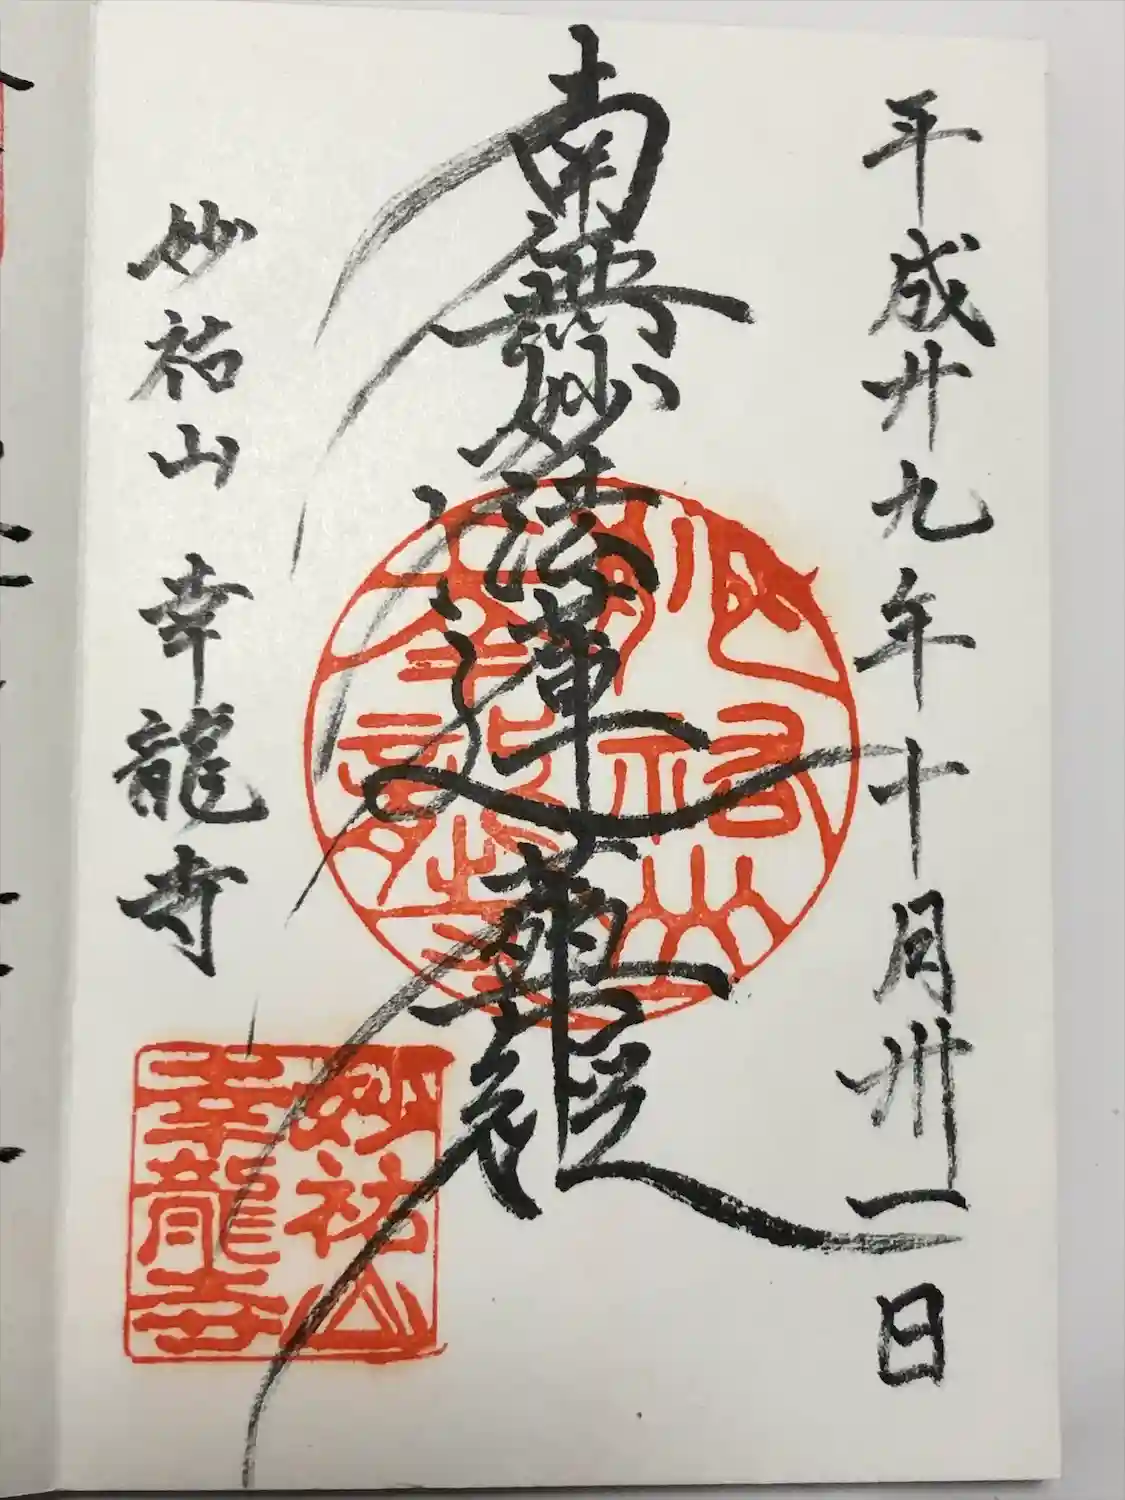 平成廿九年十月卅一日
南無妙法蓮華經
妙祐山 幸龍寺
妙祐山
幸龍寺
妙祐山
幸龍寺